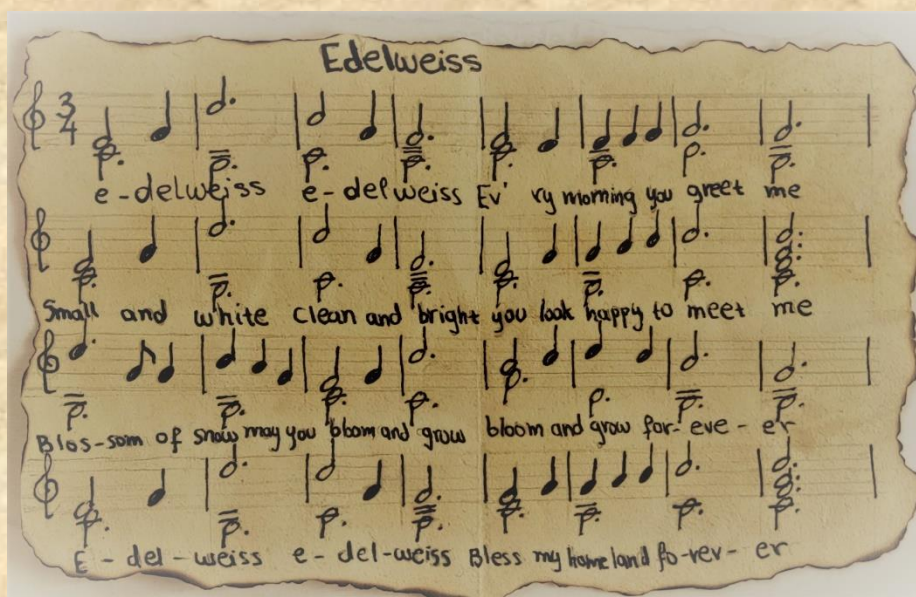 Edelweiss
3
4
e-delweiss e-delweiss Ev' ry morning you greet me
Small and white clean and bright you look happy to meet me
Blos-som of snow may you bloom and grow bloom and grow for-eve-er
E-del-weiss e-del-weiss Bless my homeland fo-rev-er